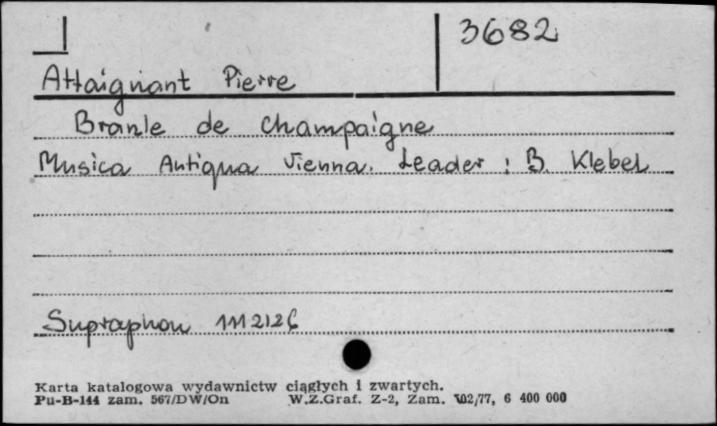 3682
Attaignant Pierre
Branle de Champaigne
Musica Antiqua Vienna. Leader : B. Klebel
Supraphon 1112126
Karta katalogowa wydawnictw ciągłych i zwartych.
Pu-B-144 zam. 567/DW/On W.Z.Graf. Z-2, Zam. 102/77, 6 400 000